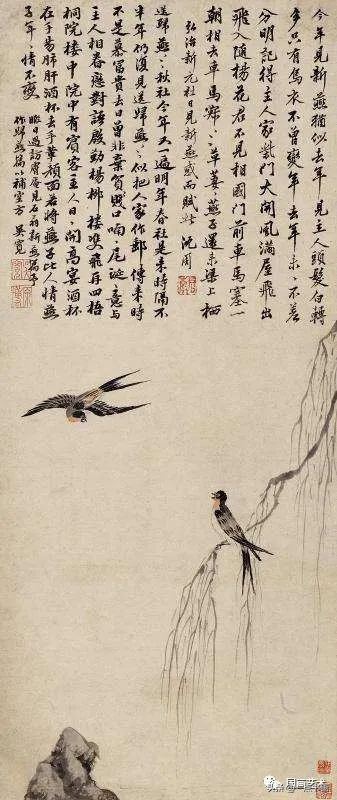 今年見新燕猶似去年見主人頭髮白轉
多只有烏衣不曾變年〻去年〻來〻不差
分明記得主人家對門大開風滿屋飛出
飛入隨楊花君不見相國門前車馬塞一
朝相去車馬寂〻草萋〻燕子還來梁上栖
弘治新元社日見新燕感而賦此 沈周
送歸燕〻秋社今又一過明年春社是來時隔不
半年仍復見送歸燕〻似把人家作郵傳來時
不是慕富貴去日曾非棄貧賤口喃〻尾涎〻竟與
主人相眷戀對語殷勤楊柳樓雙飛再四梧
桐院樓中院中有賓客主人日〻開高宴酒杯
在手易肺肝酒杯去手輒顏面君將燕子比人情燕
子年〻情不變
昨日過訪見石翁新燕篇予
作歸燕篇以補空方 吳寬
国画艺术
头条